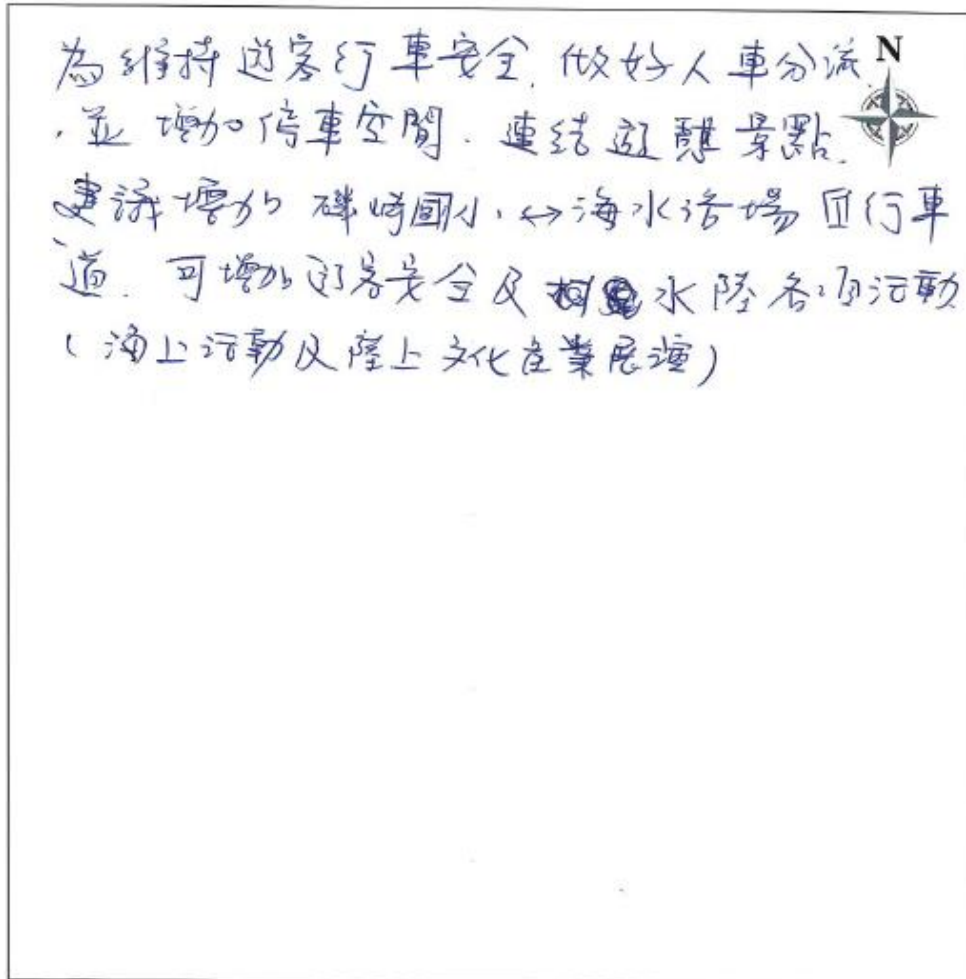 為維持遊客行車安全、做好人車分流、 N
、並增加停車空間、連結遊憩景點、
建議增加 磯崎國小、↔海水浴場 自行車
道、可增加遊客安全及 水陸各項活動
(海上活動及陸上文化產業展演)